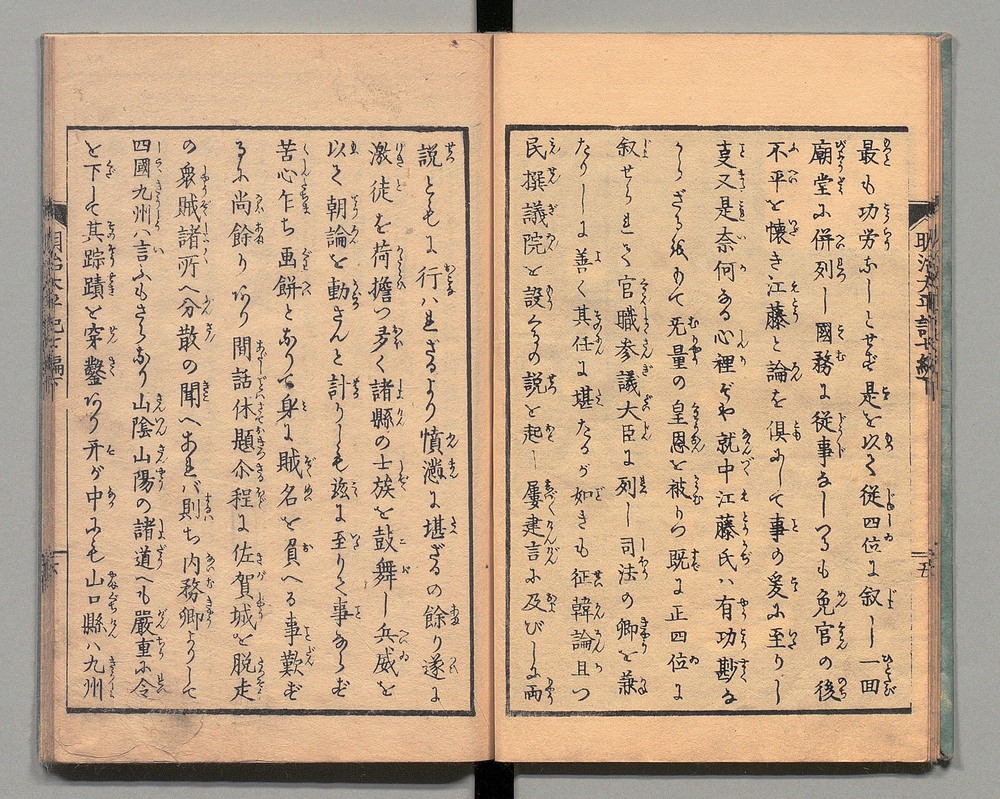 最も功労なしとせず是を以て従四位に叙し一回
廟堂に併列し國務に従事なしつるも免官の後
不平を懐き江藤と論を倶にして事の爰に至りし
支又是奈何なる心裡ぞや就中江藤氏ハ有功尠な
からざるをもて無量の皇恩を被りつ既に正四位に
叙せられて官職参議大臣に列し司法の卿を兼
たりしに善く其任に堪たるが如きも征韓論且つ
民撰議院を設くるの説を起し屡建言に及びしに両
説ともに行ハれざるより憤懣に堪ざるの餘り遂に
激徒を荷擔つ多く諸縣の士族を鼓舞し兵威を
以て朝論を動さんと計りしも茲に至りて事ならず
苦心乍ち画餅となりて身に賊名を負へる事歎ず
るに尚餘りあり閒話休題尒程に佐賀城を脱走
の衆賊諸所へ分散の聞へあれバ則ち内務卿よりして
四國九州ハ言ふもさらなり山陰山陽の諸道へも嚴重に令
を下して其踪蹟を穿鑿あり开が中にも山口縣ハ九州
明治太平記七編下
五